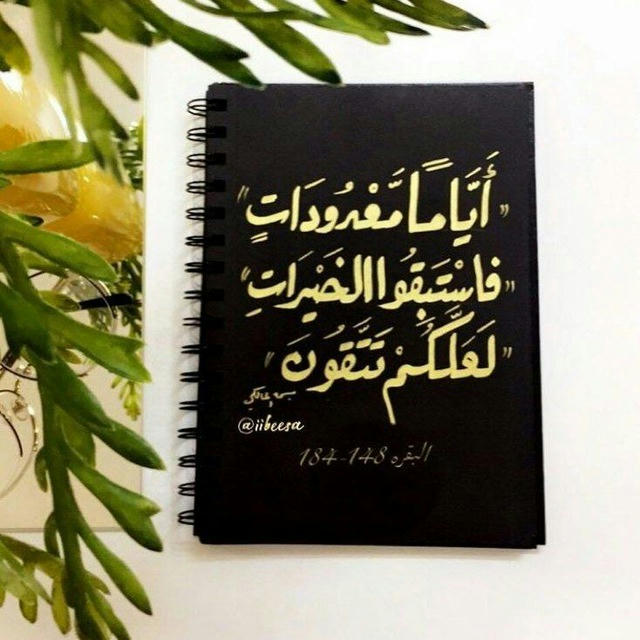 "أَيَّامًا مَّعْدُودَاتٍ"
"فَاسْتَبِقُوا الْخَيْرَاتِ"
"لَعَلَّكُمْ تَتَّقُونَ"
@iibeesa
البقره 148-184